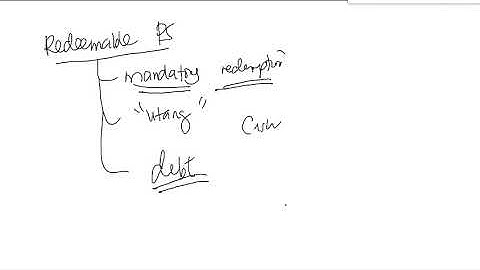 Redeemable PS
mandatory redemption
"utang"
Cash
debt